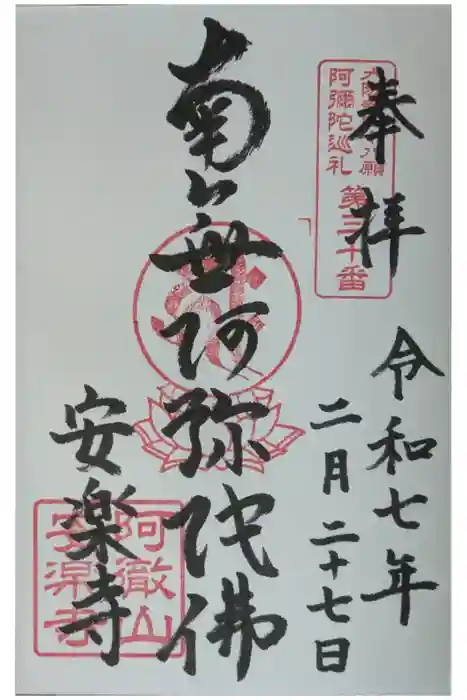 奉拝
阿彌陀巡礼
第三十番
令和七年
二月二十七日
南無阿弥陀佛
安楽寺
阿徹山
安楽寺